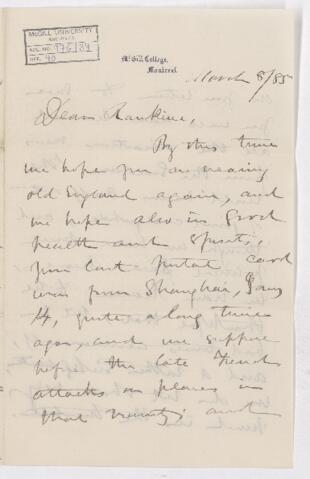 McGILL UNIVERSITY
ARCHIVES
ACC. NO.
REF.
McGill College,
Montreal.
March 8/85
Dear Rankine,
By this time
we hope you are nearing
old England again, and
we hope also in good
health and spirits,
Your last postal card
was from Shanghai, Jany
14, quite a long time
ago, and we suppose
the late French
attacks on places in
that vicinity and